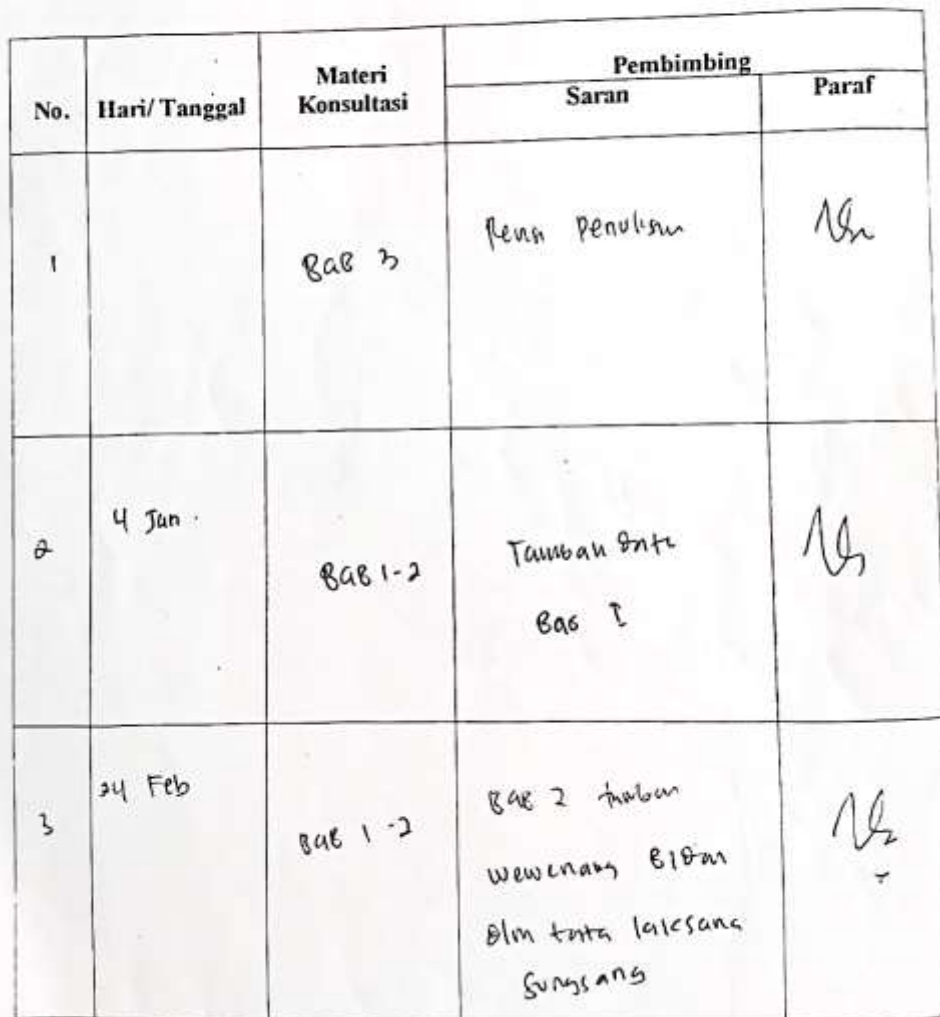 No.
Hari/ Tanggal
Materi
Konsultasi
Pembimbing
Saran
Paraf
1
BAB 3
Revisi Penulisan
2
4 Jan.
BAB 1-2
Tambah data
Bab I
3
24 Feb
BAB 1-2
BAB 2 tambah
wewenang Bidan
dlm tata laksana
Sungsang